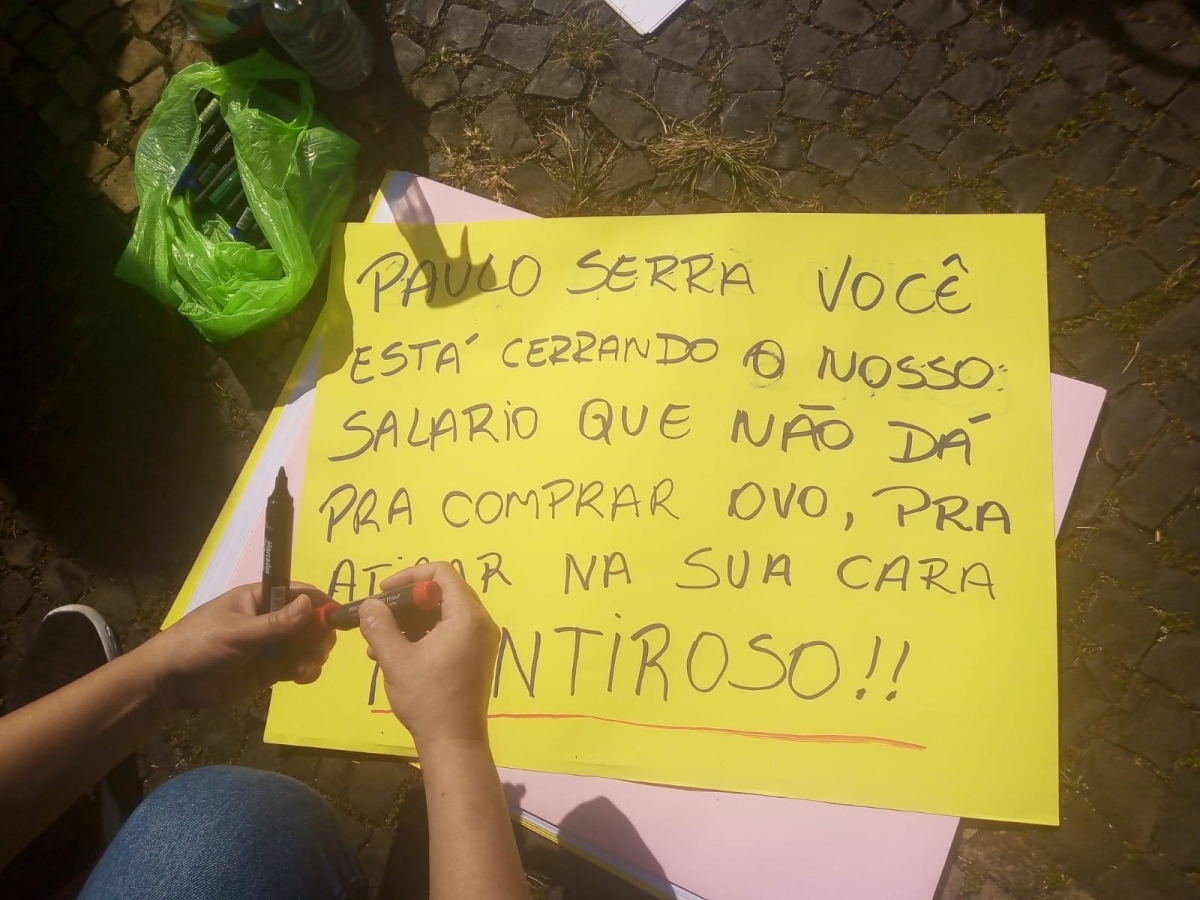 PAULO SERRA VOCÊ
ESTÁ CERRANDO O NOSSO
SALARIO QUE NÃO DÁ
PRA COMPRAR OVO, PRA
ATIRAR NA SUA CARA
MENTIROSO!!
Marcador